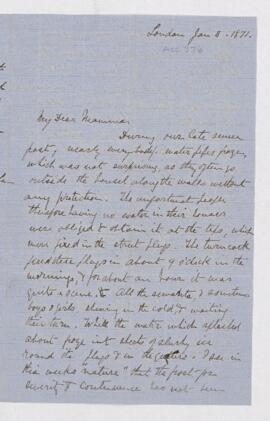 London Jan 8. 1871.
ACC 376
My Dear Mamma
During our late severe
frost, nearly everybody's water pipes froze,
which was not surprising, as they often go
outside the houses along the walls without
any protection. The unfortunate people
therefore having no water in their houses
were obliged to obtain it at the taps, which
were fixed in the street plugs. The turncock
plugs in about 9 o'clock in the
mornings, & for about an hour it was
quite a scene, All the servants, & sometimes
boys & girls, shivering in the cold, & waiting
their turn. While the water which splashed
about froze into sheets of slush, all
round the plugs & in the I see in
this weeks "nature" that the frost for
severity & continuance has not been